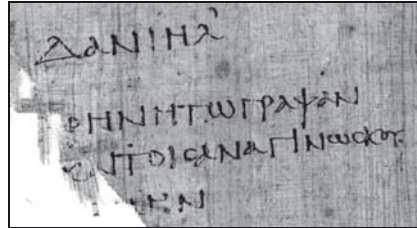 ΔΑΝΙΗΛ
ΡΗΝΗΤΩΓΡΑΨΑΝ
ΤΟΙϹΑΝΑΓΙΝΩϹΚΟΥ
ΗΝ